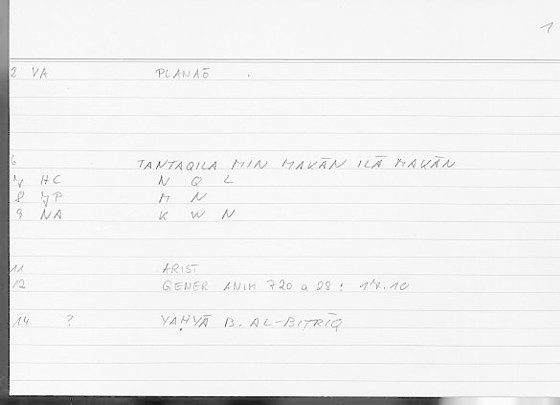 1
2 VA PLANAŌ .
6 TANTAQILA MIN MAKĀN ILĀ MAKĀN
7 HC N Q L
8 JP M N
9 NA K W N
11 ARIST
12 GENER ANIM 720 a 28 :
14 ? YAḤYĀ B. AL-BIṬRĪQ